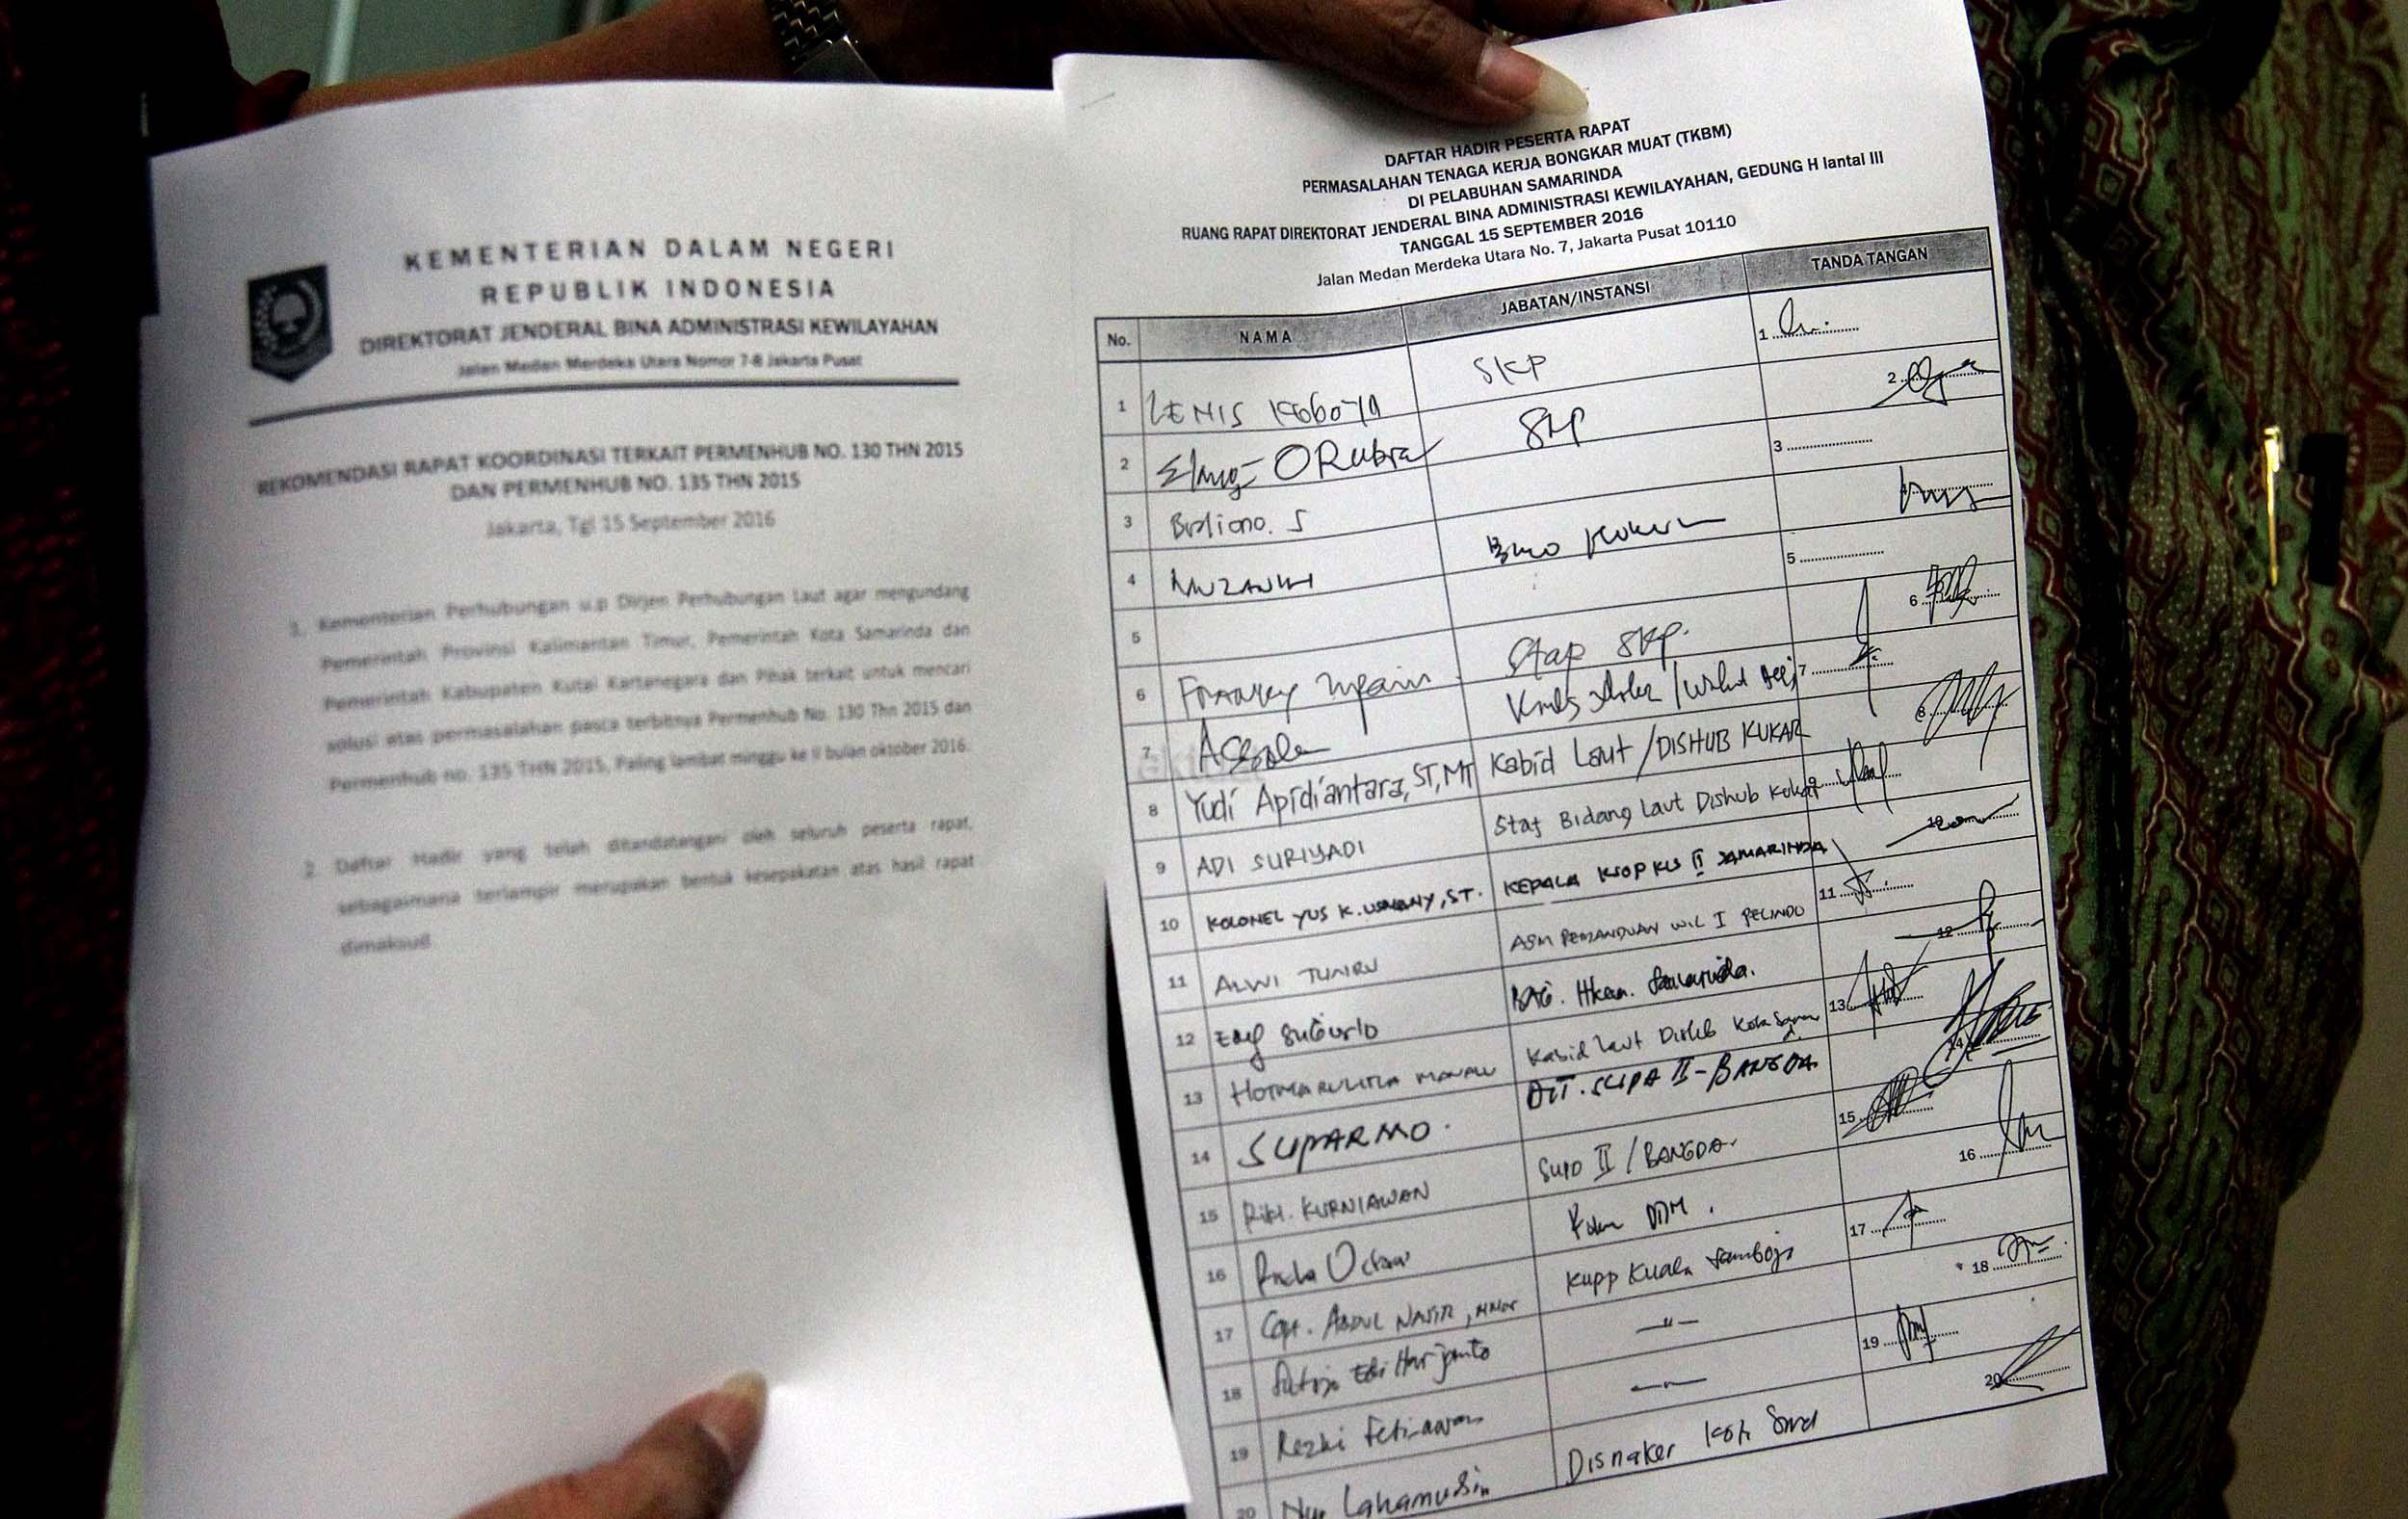 KEMENTERIAN DALAM NEGERI
REPUBLIK INDONESIA
DIREKTORAT JENDERAL BINA ADMINISTRASI KEWILAYAHAN
Jalan Medan Merdeka Utara Nomor 7-8 Jakarta Pusat
REKOMENDASI RAPAT KOORDINASI TERKAIT PERMENHUB NO. 130 THN 2015
DAN PERMENHUB NO. 135 THN 2015
Jakarta, Tgl 15 September 2016
1. Kementerian Perhubungan u.p Dirjen Perhubungan Laut agar mengundang
Pemerintah Provinsi Kalimantan Timur, Pemerintah Kota Samarinda dan
Pemerintah Kabupaten Kutai Kartanegara dan Pihak terkait untuk mencari
solusi atas permasalahan pasca terbitnya Permenhub No. 130 Thn 2015 dan
Permenhub no. 135 THN 2015, Paling lambat minggu ke II bulan oktober 2016.
2. Daftar Hadir yang telah ditandatangani oleh seluruh peserta rapat,
sebagaimana terlampir merupakan bentuk kesepakatan atas hasil rapat
dimaksud.
DAFTAR HADIR PESERTA RAPAT
PERMASALAHAN TENAGA KERJA BONGKAR MUAT (TKBM)
DI PELABUHAN SAMARINDA
RUANG RAPAT DIREKTORAT JENDERAL BINA ADMINISTRASI KEWILAYAHAN, GEDUNG H lantai III
TANGGAL 15 SEPTEMBER 2016
Jalan Medan Merdeka Utara No. 7, Jakarta Pusat 10110
No. NAMA JABATAN/INSTANSI TANDA TANGAN
1 LENIS Kogoya SKP 1
2 SKP 2
3 S 3
4 Biro 4
5 5
6 Staf SKP. 6
7 7
8 Yudi Apidiantara, ST, MT Kabid Laut / DISHUB KUKAR 8
9 ADI SURIYADI Staf Bidang Laut Dishub Kukar 9
10 KOLONEL YUS K. USMANY, ST. KEPALA KSOP KLS II SAMARINDA 10
11 ALWI ASM PEMANDUAN WIL I PELINDO 11
12 Samarinda. 12
13 Kabid Laut Dishub Kota 13
14 SUPARMO. DIT. SUPD II - BANGDA 14
15 RIKI. KURNIAWAN SUPD II / BANGDA. 15
16 16
17 Capt. ABDUL NASIR, KUPP Kuala Samboja 17
18 Harjanto -"- 18
19 Rezki Setiawan -"- 19
20 Nur Disnaker 20